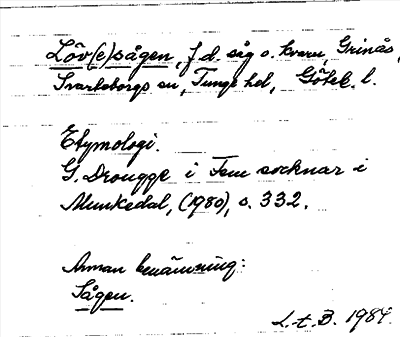 Löv(e)sågen, f.d. såg o. kvarn, Grinås,
Svarteborgs sn, Tunge hd, Göteb. l.
Etymologi.
G. Drougge i Fem socknar i
Munkedal, (1980), s. 332.
Annan benämning:
Sågen.
L.t.B. 1984.